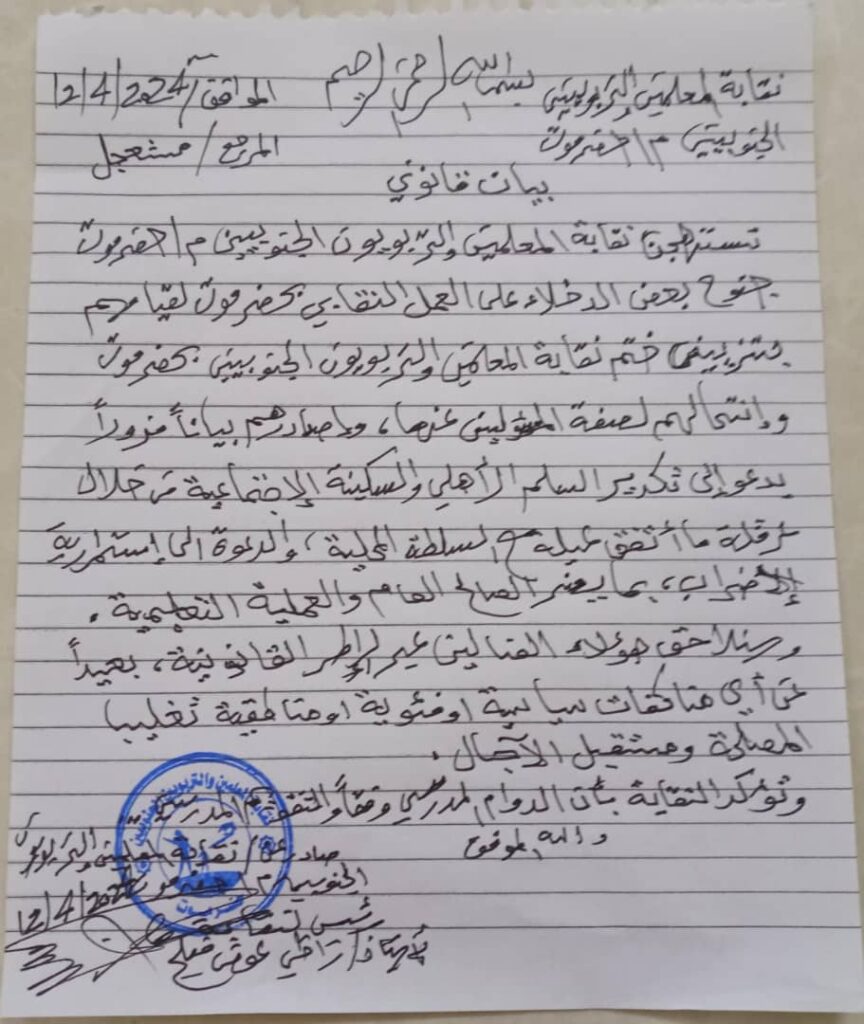 بسم الله الرحمن الرحيم
نقابة المعلمين والتربويين الموافق/ 12/4/2024
الجنوبيين م/حضرموت المرجع/ مستعجل
بيان قانوني
تستهجن نقابة المعلمين والتربويون الجنوبيين م/حضرموت
جنوح بعض الدخلاء على العمل النقابي بحضرموت لقيامهم
بتزييف ختم نقابة المعلمين والتربويون الجنوبيين بحضرموت
وإنتحالهم لصفة عنها، وإصدارهم بياناً مزوراً
يدعو إلى تكدير السلم الأهلي والسكينة الإجتماعية من خلال
عرقلة ما أتفق عليه مع السلطة المحلية، والدعوة الى إستمرارية
الأضراب، بما يضر الصالح العام والعملية التعليمية.
وسنلاحق هؤلاء الضالين عبر الإطر القانونية، بعيداً
عن أي مناكفات سياسية او فئوية او مناطقية تغليبا
المصلحة ومستقبل الأجيال.
وتؤكد النقابة بأن الدوام المدرسي وفقاً والتقويم المدرسي
والله الموفق
صادر عن/ نقابة المعلمين والتربويون
الجنوبيين م/حضرموت
12/4/2024
رئيس النقابة
الأستاذ/ عوض